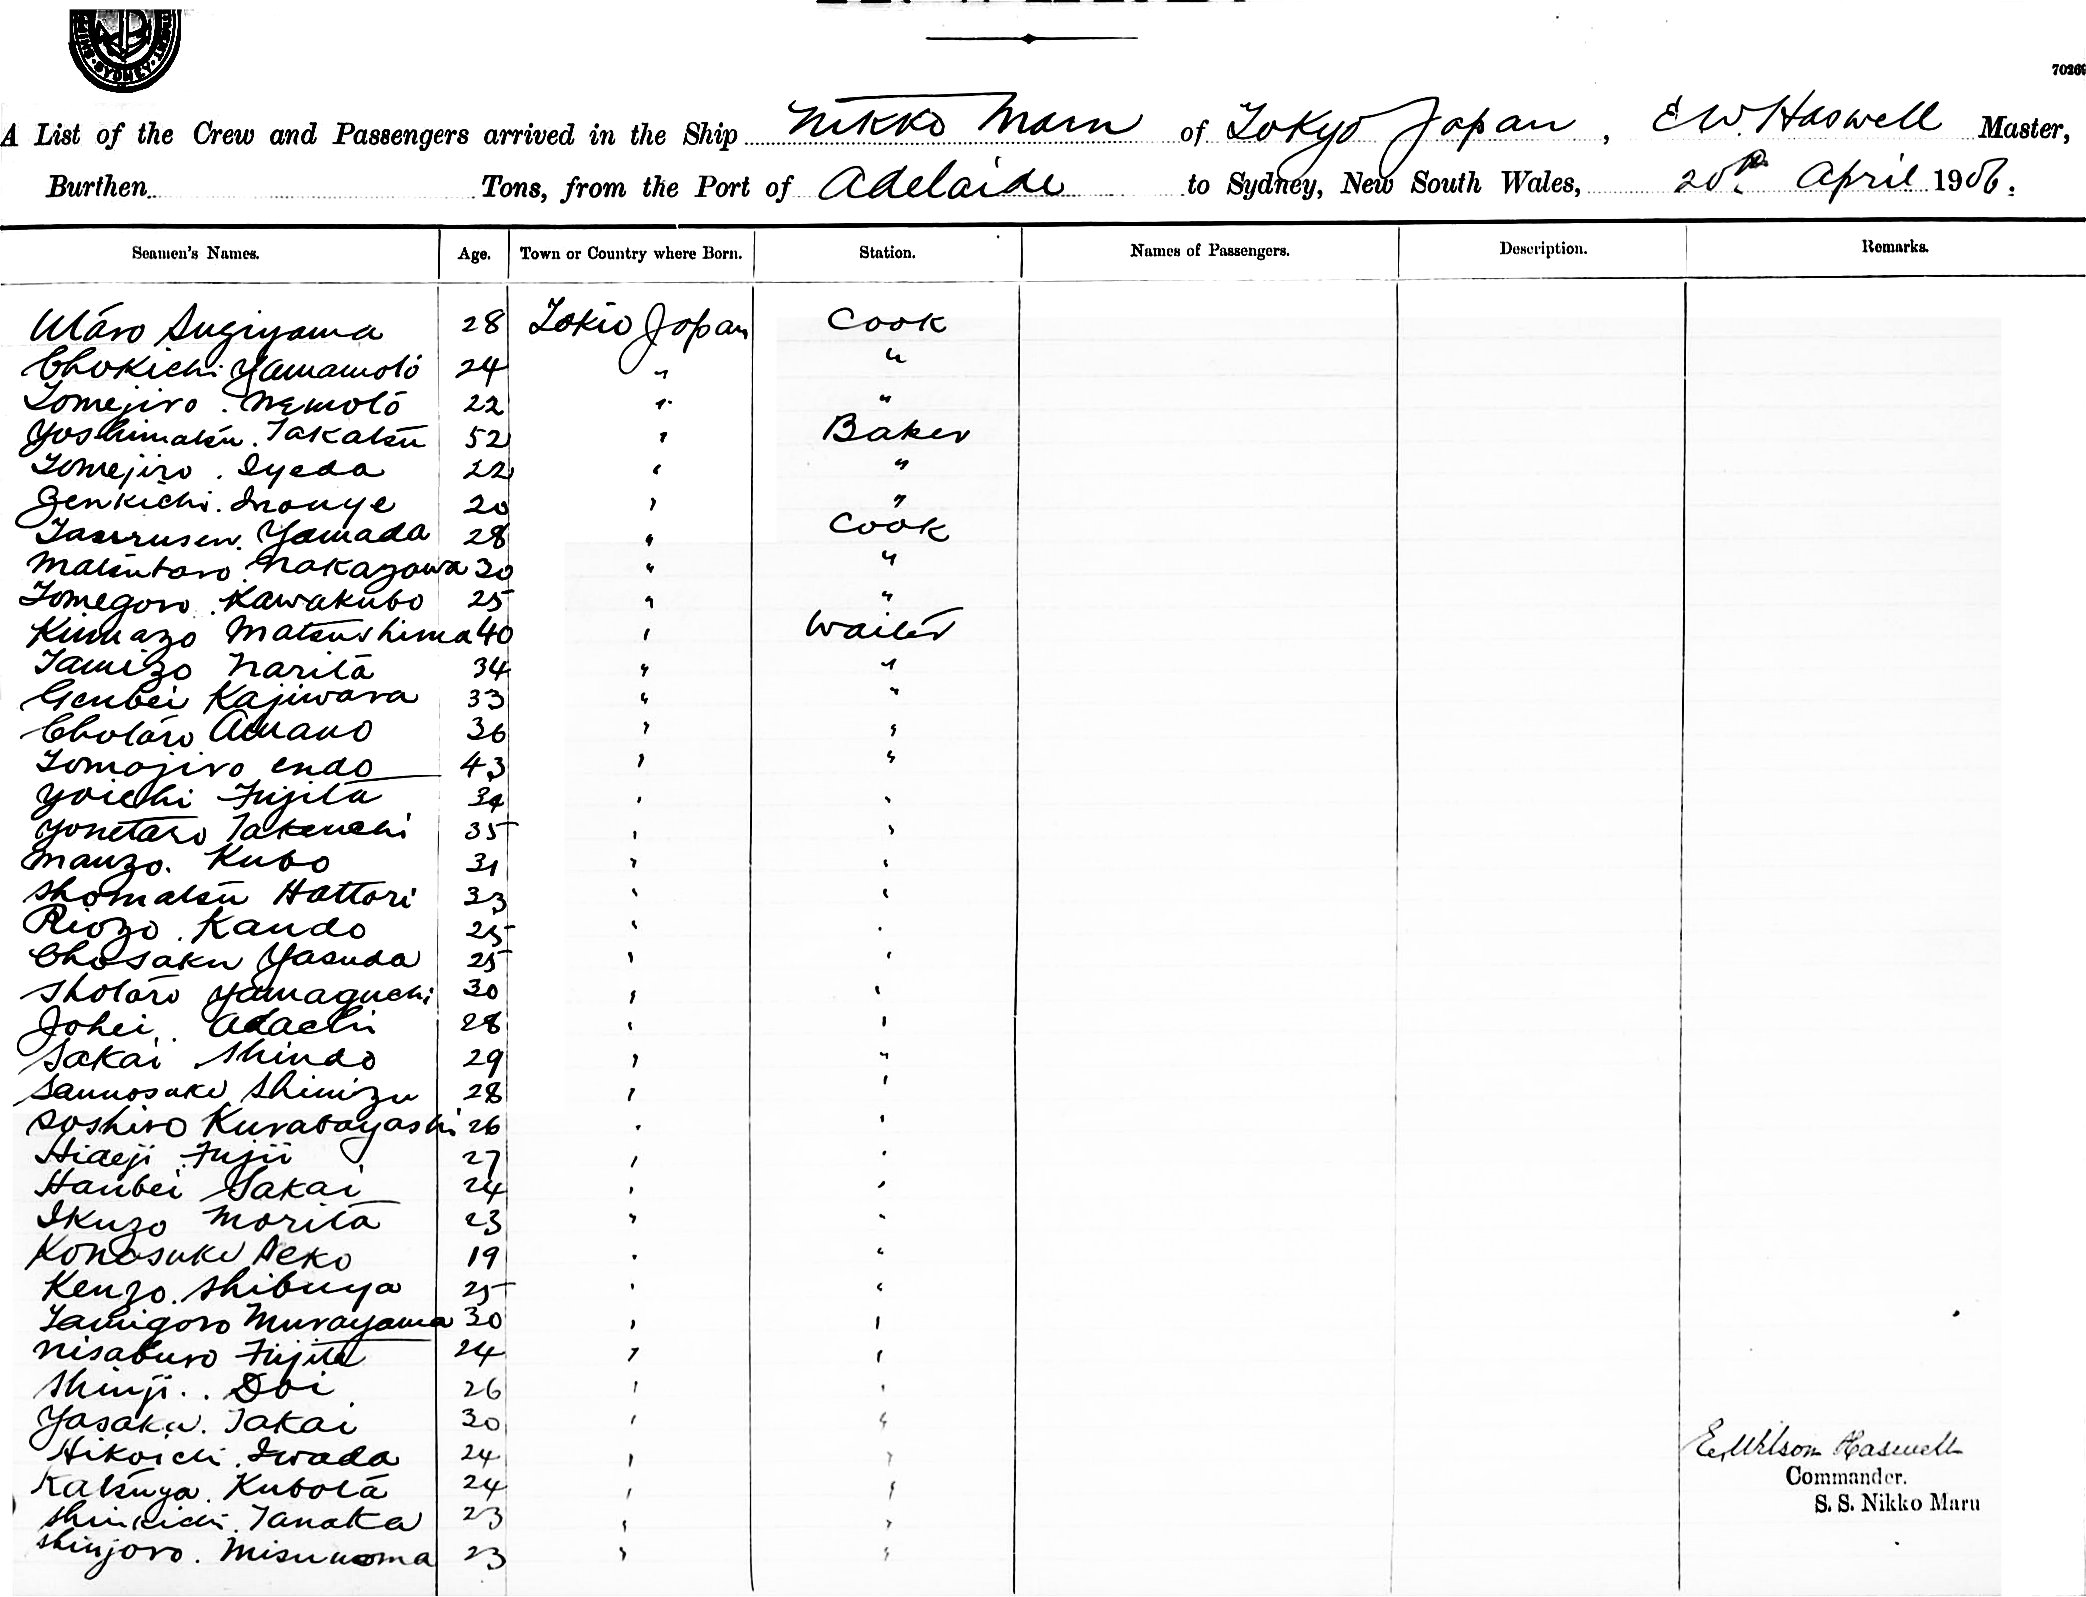 SYDNEY
70269
A List of the Crew and Passengers arrived in the Ship Nikko Maru of Tokyo Japan, E W. Haswell Master,
Burthen Tons, from the Port of Adelaide to Sydney, New South Wales, 20th April 1906.
Seamen's Names. Age. Town or Country where Born. Station. Names of Passengers. Description. Remarks.
Utaro Sugiyama 28 Tokio Japan Cook
Chokichi Yamamoto 24 " "
Tomejiro . Nemoto 22 " "
Yoshimatsu . Takatsu 52 " Baker
Tomejiro . Iyeda 22 " "
Genkichi . Inouye 20 " "
Yamada 28 " Cook
Matsutaro Nakazawa 30 " "
Tomegoro . Kawakubo 25 " "
Kumazo Matsushima 40 " Waiter
Tamizo Narita 34 " "
Genbei Kajiwara 33 " "
Chotaro Amano 36 " "
Tomojiro endo 43 " "
Yoichi Fujita 34 " "
Yonetaro Takeuchi 35 " "
Manzo . Kubo 31 " "
Shomatsu Hattori 33 " "
Riozo . Kando 25 " "
Chosaku Yasuda 25 " "
Shotaro Yamaguchi 30 " "
Johei . Adachi 28 " "
Sakai Shindo 29 " "
Sannosuke Shimizu 28 " "
Soshiro Kurabayashi 26 " "
Hideji Fujii 27 " "
Hanbei Sakai 24 " "
Ikuzo Morita 23 " "
Konosuke Seko 19 " "
Kenzo . Shibuya 25 " "
Tamigoro Murayama 30 " "
Nisaburo Fujita 24 " "
Shinji . . Doi 26 " "
Yasaku . Takai 30 " "
Hikoichi . Iwada 24 " "
Katsuya . Kubota 24 " "
Shinkichi . Tanaka 23 " "
Shinjoro . Misunoma 23 " "
E. Wilson Haswell
Commander.
S. S. Nikko Maru